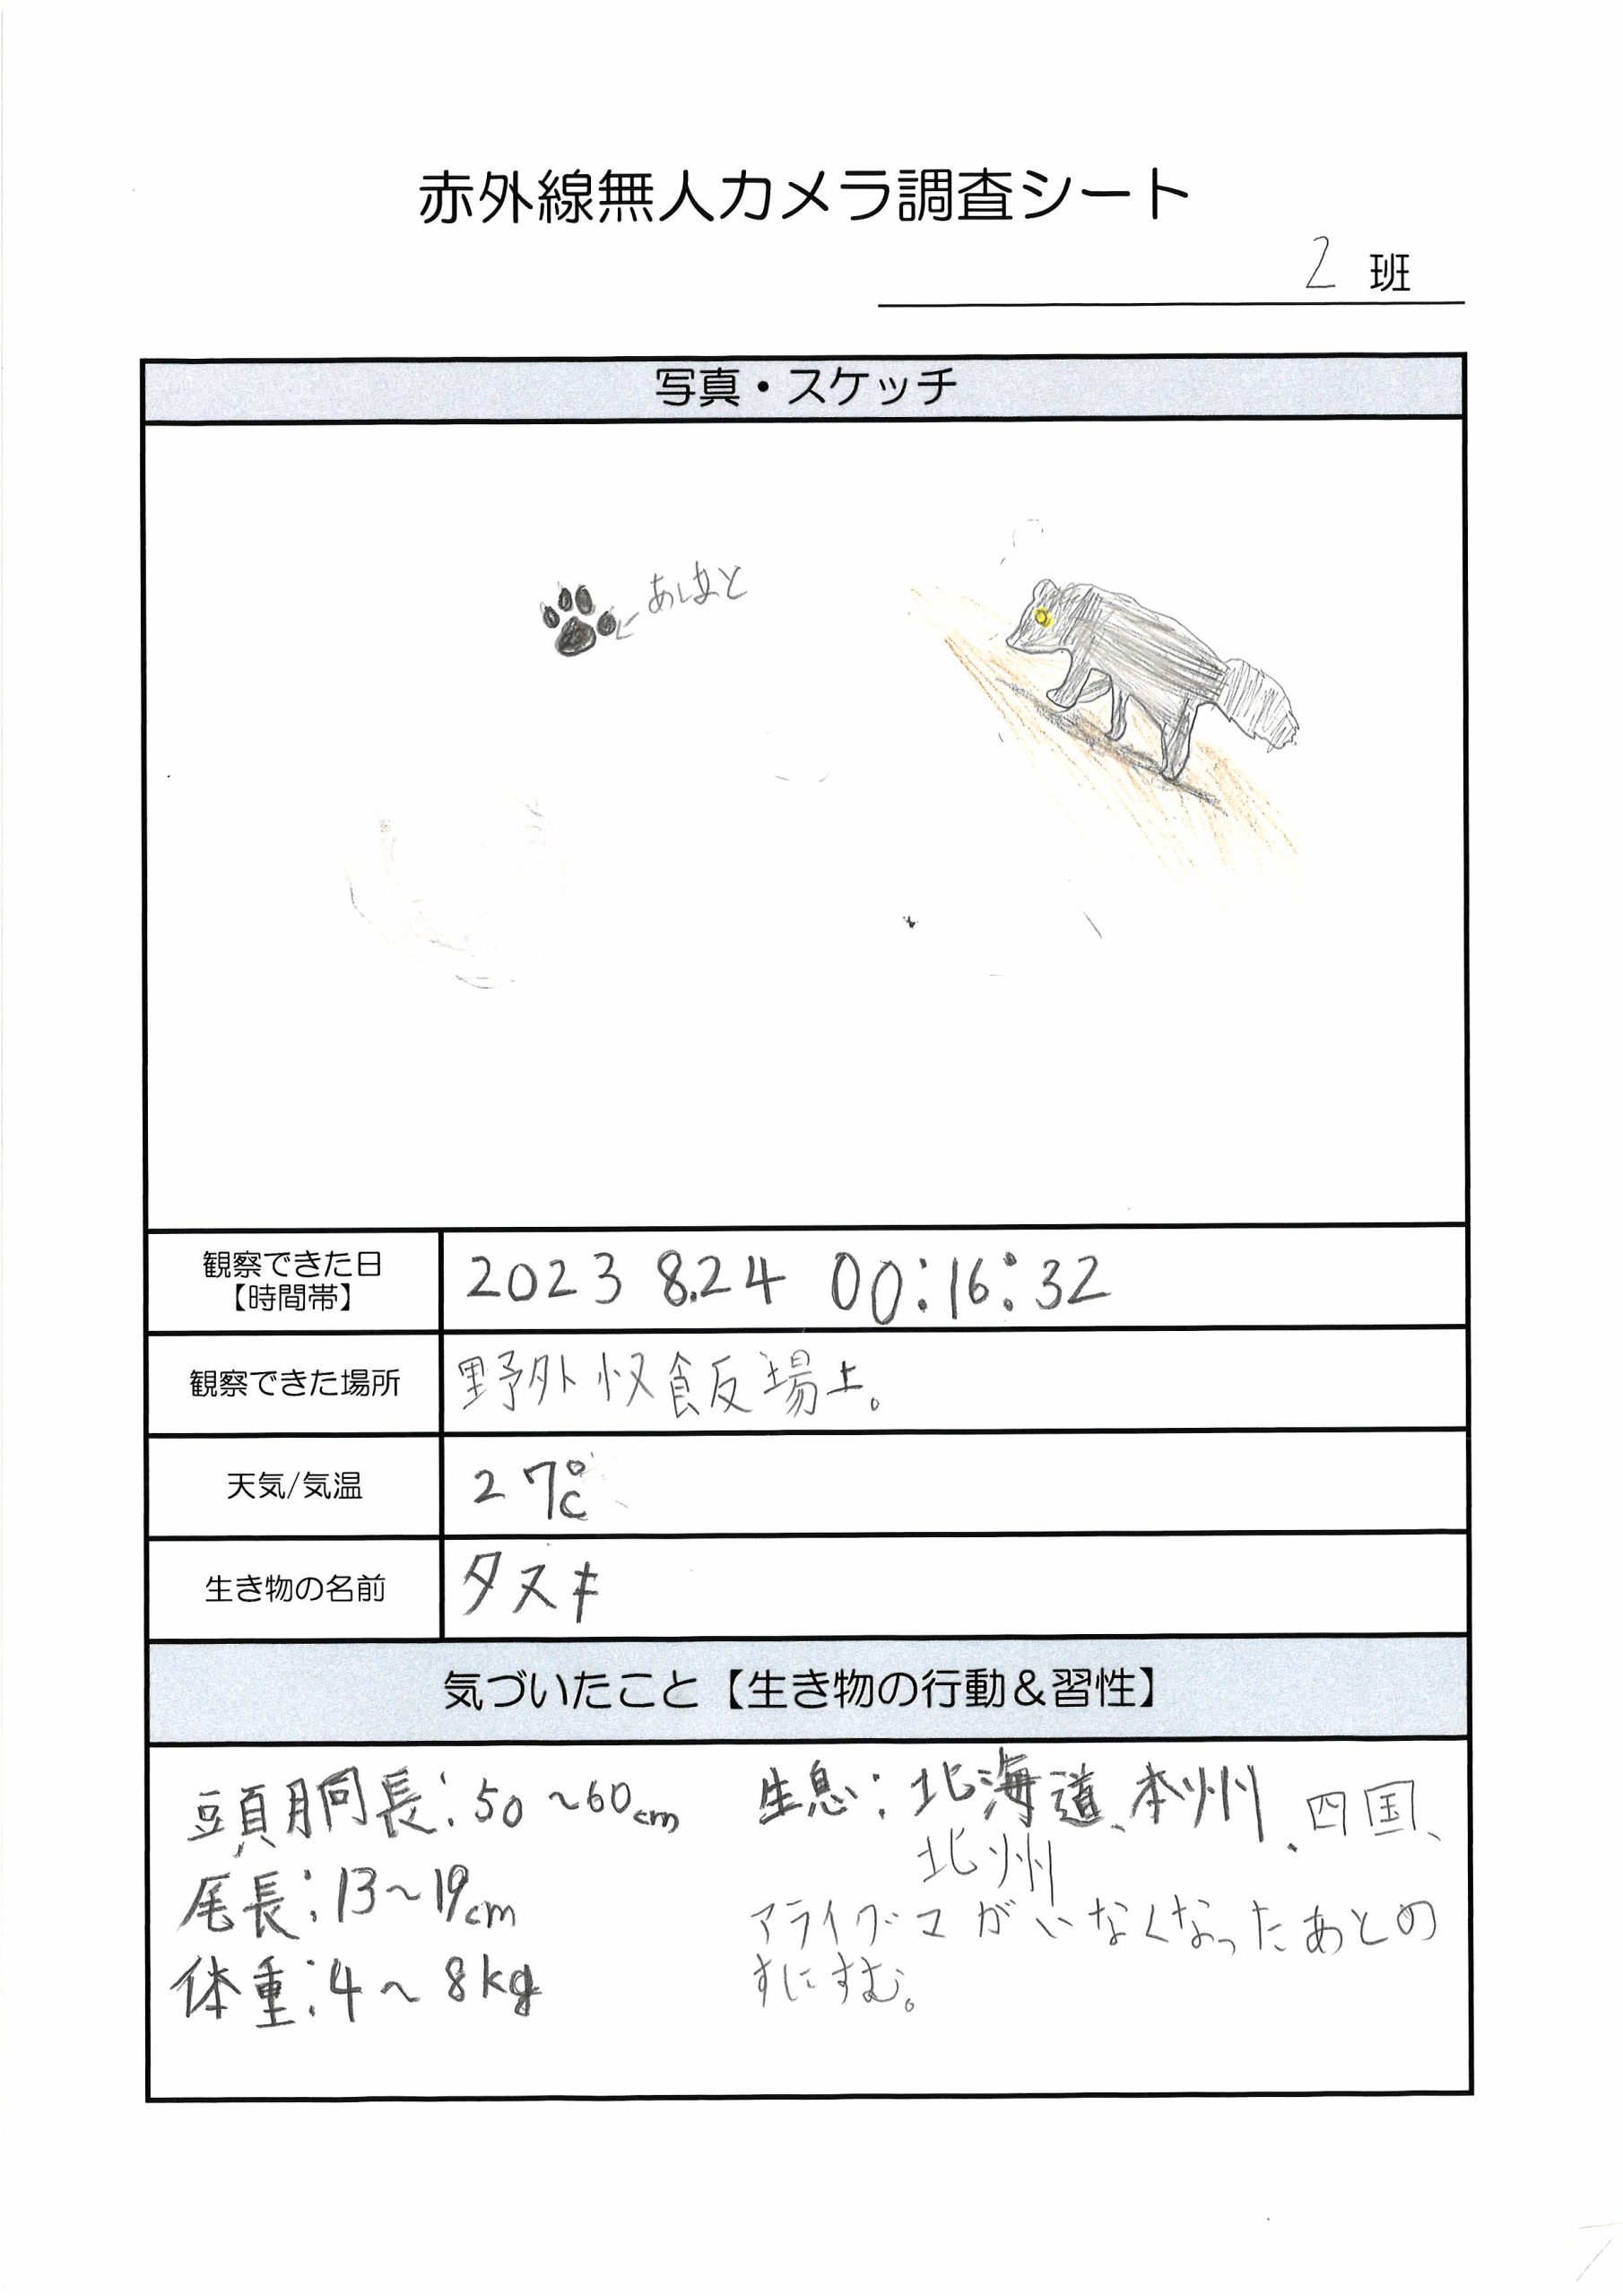 赤外線無人カメラ調査シート
2 班
写真・スケッチ
あしあと
観察できた日
【時間帯】
2023 8.24 00:16:32
観察できた場所
野外炊飯場上。
天気/気温
27℃
生き物の名前
タヌキ
気づいたこと【生き物の行動&習性】
頭胴長:50~60cm
尾長:13~19cm
体重:4~8kg
生息:北海道、本州、四国、
北州
アライグマがいなくなったあとの
すにすむ。